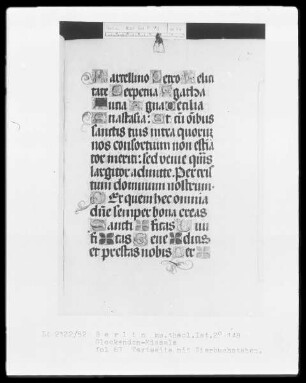 Marcellino Petro Felici
tate Perpetua Agatha
Lucia Agna Cecilia
Anastasia: Et cū oībus
sanctis tuis intra quorū
nos consortium non estīa
tor meriti: sed venie qs̄
largitor admitte. Per cris
tum dominum nostrum.
Per quem hec omnia
dn̄e semper bona creas
Sancti ficas Vivi
fi cas Bene dicis
et prestas nobis Per
Berlin ms.theol.lat.2° 148
Glockendon-Missale